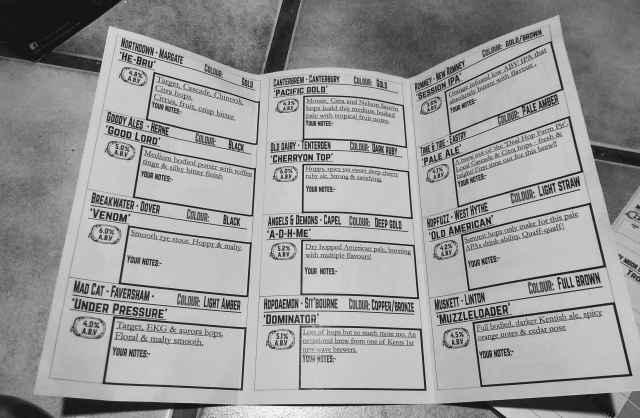 Northdown - Margate Colour: Gold
'He-Bru'
4.8% A.B.V
Target, Cascade, Chinook,
Citra hops.
Citrus, fruit, crisp bitter.
YOUR NOTES:-
Goody Ales - Herne Colour: Black
'Good Lord'
5.0% A.B.V
Medium bodied porter with toffee
tinge & silky bitter finish
YOUR NOTES:-
Breakwater - Dover Colour: Black
'Venom'
6.0% A.B.V
Smooth rye stout. Hoppy & malty.
YOUR NOTES:-
Mad Cat - Faversham - Colour: Light Amber
'Under Pressure'
4.0% A.B.V
Target, EKG & aurora hops.
Floral & malty smooth.
YOUR NOTES:-
Canterbrew - Canterbury Colour: Gold
'Pacific Gold'
A.B.V
Mosaic, Citra and Nelson Sauvin
hops build this medium bodied
pale with tropical fruit notes.
YOUR NOTES:-
Old Dairy - Tenterden Colour: Dark Ruby
'Cherryon Top'
6.0% A.B.V
Hoppy, spicy yet sweet deep cherry
ruby ale. Strong & satisfying.
YOUR NOTES:-
Angels & Demons - Capel Colour: Deep Gold
'A-D-H-Me'
5.2% A.B.V
Dry hopped American pale, bursting
with multiple flavours!
YOUR NOTES:-
Hopdaemon - Sit'bourne Colour: Copper/Bronze
'Dominator'
5.1% A.B.V
Lots of hops but so much more too. An
occasional brew from one of Kents 1st
new wave brewers.
YOUR NOTES:-
Romney - New Romney Colour: Gold/Brown
'Session IPA'
A.B.V
Orange infused low ABV IPA that
absolutely bursts with flavour.
YOUR NOTES:-
Time & Tide - Eastry Colour: Pale Amber
'Pale Ale'
A.B.V
Local Cascade & Citra hops - fresh &
bright! First time out for this beer!!
YOUR NOTES:-
Hopfuzz - West Hythe Colour: Light Straw
'Old American'
4.2% A.B.V
Summit hops only make for this pale
APAs drink ability. Quaff-quaff!
YOUR NOTES:-
Muskett - Linton Colour: Full Brown
'Muzzleloader'
4.5% A.B.V
Full bodied, darker Kentish ale, spicy
orange notes & cedar nose
YOUR NOTES:-